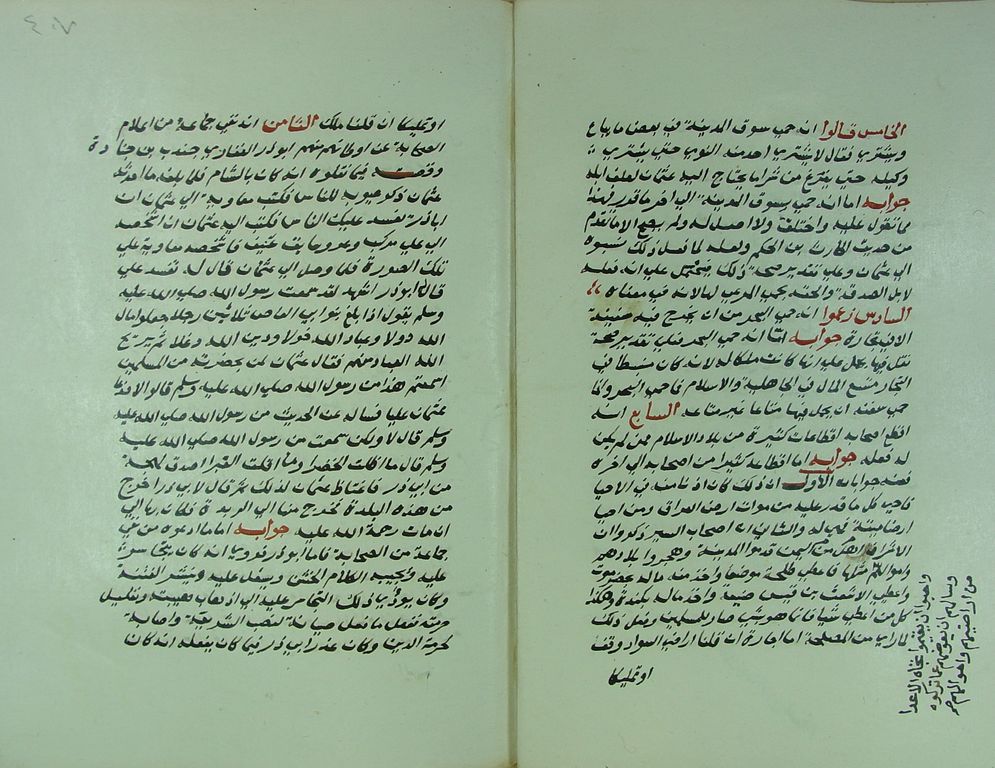 الخامس قالوا انه حمى سوق المدينة في بعض ما يباع
ويشتري فقال لا يشتري احد منه النوي حتى يشتري
وكيله حتى يفرغ من شراء ما يحتاج اليه عثمان لعلف ابله
جوابه اما انه حمى سوق المدينة الى اخر ما قدر فهذا
مما تقول عليه واختلق ولا اصل له ولم يصح الا ما تقدم
من حديث الحارث بن الحكم ولعله لما فعل ذلك نسبوه
الى عثمان وعلى تقدير صحة ذلك يحمل على انه فعله
لابل الصدقة والحقه بحمى المرعى لها لانه في معناه
السادس زعموا انه حمى البحر من ان يخرج فيه سفينة
الا في تجارة جوابه اما انه حمى البحر فعلى تقدير صحة
نقل فيها يحمل على انها كانت ملكا له لانه كان منبسطا في
التجارة متسع المال في الجاهلية والاسلام فما حمى البحر وانما
حمى سفنه ان يحمل فيها متاعا غير متاعه السابع انه
اقطع اصحابه اقطاعات كثيرة من بلاد الاسلام ممن لم يكن
له فعله جوابه اما اقطاعه كثيرا من اصحابه الى اخره
فعنه جوابان الاول ان ذلك كان اذنا منه في الاحيا
فاحيى كل ما قدر عليه من موات ارض العراق ومن احيا
ارضا ميتة فهي له والثاني ان اصحاب السير ذكروا ان
الاشراف من اهل اليمن قدموا المدينة وهجروا بلادهم
واموالهم مثلها فاعطى طلحة موضعا واخذ منه ماله بحضرموت
واعطى الاشعث بن قيس ضيعة واخذ ماله بكندة وهكذا
كل من اعطى شيأ فانما هو شيء صار للمسلمين وفعل ذلك
لما راى من المصلحة اما اجارة ان قلنا اراضي السواد وقف
او تمليكا
واموالهم ان يقيموا تجاه الاعدا
وسالهم ان يعوضهم عما تركوه
من اراضيهم واموالهم صح
او تمليكا ان قلنا ملك الثامن انه نفى جماعة من اعلام
الصحابة عن اوطانهم منهم ابو ذر الغفاري جندب بن جنادة
وقصته فيما نقلوه انه كان بالشام فلما بلغه ما احدث
عثمان ذكر عيوبه للناس فكتب معاوية الى عثمان ان
اباذر يفسد عليك الناس فكتب اليه عثمان ان اشخصه
الي على مركب وعر وسايق عنيف فاشخصه معاوية على
تلك الصورة فلما وصل الى عثمان قال له لم تفسد علي
قال ابو ذر اشهد لقد سمعت رسول الله صلى الله عليه
وسلم يقول اذا بلغ بنو ابي العاص ثلاثين رجلا جعلوا مال
الله دولا وعباد الله خولا ودين الله دغلا ثم يريح
الله العباد منهم فقال عثمان لمن بحضرته من المسلمين
اسمعتم هذا من رسول الله صلى الله عليه وسلم قالوا لا فدعا
عثمان عليا فساله عن الحديث من رسول الله صلى الله عليه
وسلم قال لا ولكن سمعت من رسول الله صلى الله عليه
وسلم قال ما اظلت الخضرا وما اقلت الغبرا اصدق لهجة
من ابي ذر فاغتاظ عثمان لذلك ثم قال لابي ذر اخرج
من هذه البلدة فخرج منها الى الربذة فكان بها الى
ان مات رحمة الله عليه جوابه اما ما ادعوه من نفي
جماعة من الصحابة فاما ابو ذر فروي انه كان يتجاسر
عليه ويجيبه الكلام الخشن ويفسد عليه ويثير الفتنة
وكان يودي ذلك التجاسر عليه الى اذهاب هيبته وتقليل
حرمته ففعل ما فعل صيانة لمنصب الشريعة واصابة
لحرمة الدين وكان عذر ابي ذر فيما كان يفعله انه كان